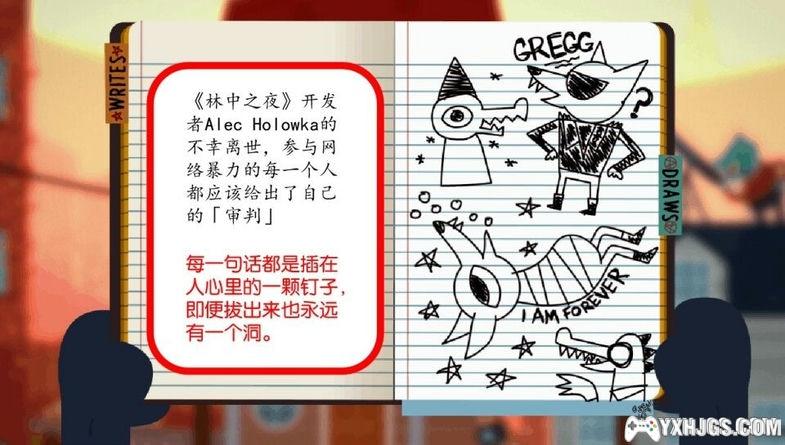 WRITES
《林中之夜》开发
者Alec Holowka的
不幸离世，参与网
络暴力的每一个人
都应该给出了自己
的「审判」
每一句话都是插在
人心里的一颗钉子，
即便拔出来也永远
有一个洞。
GREGG
?
DRAWS
I AM FOREVER
YXHJGS.COM